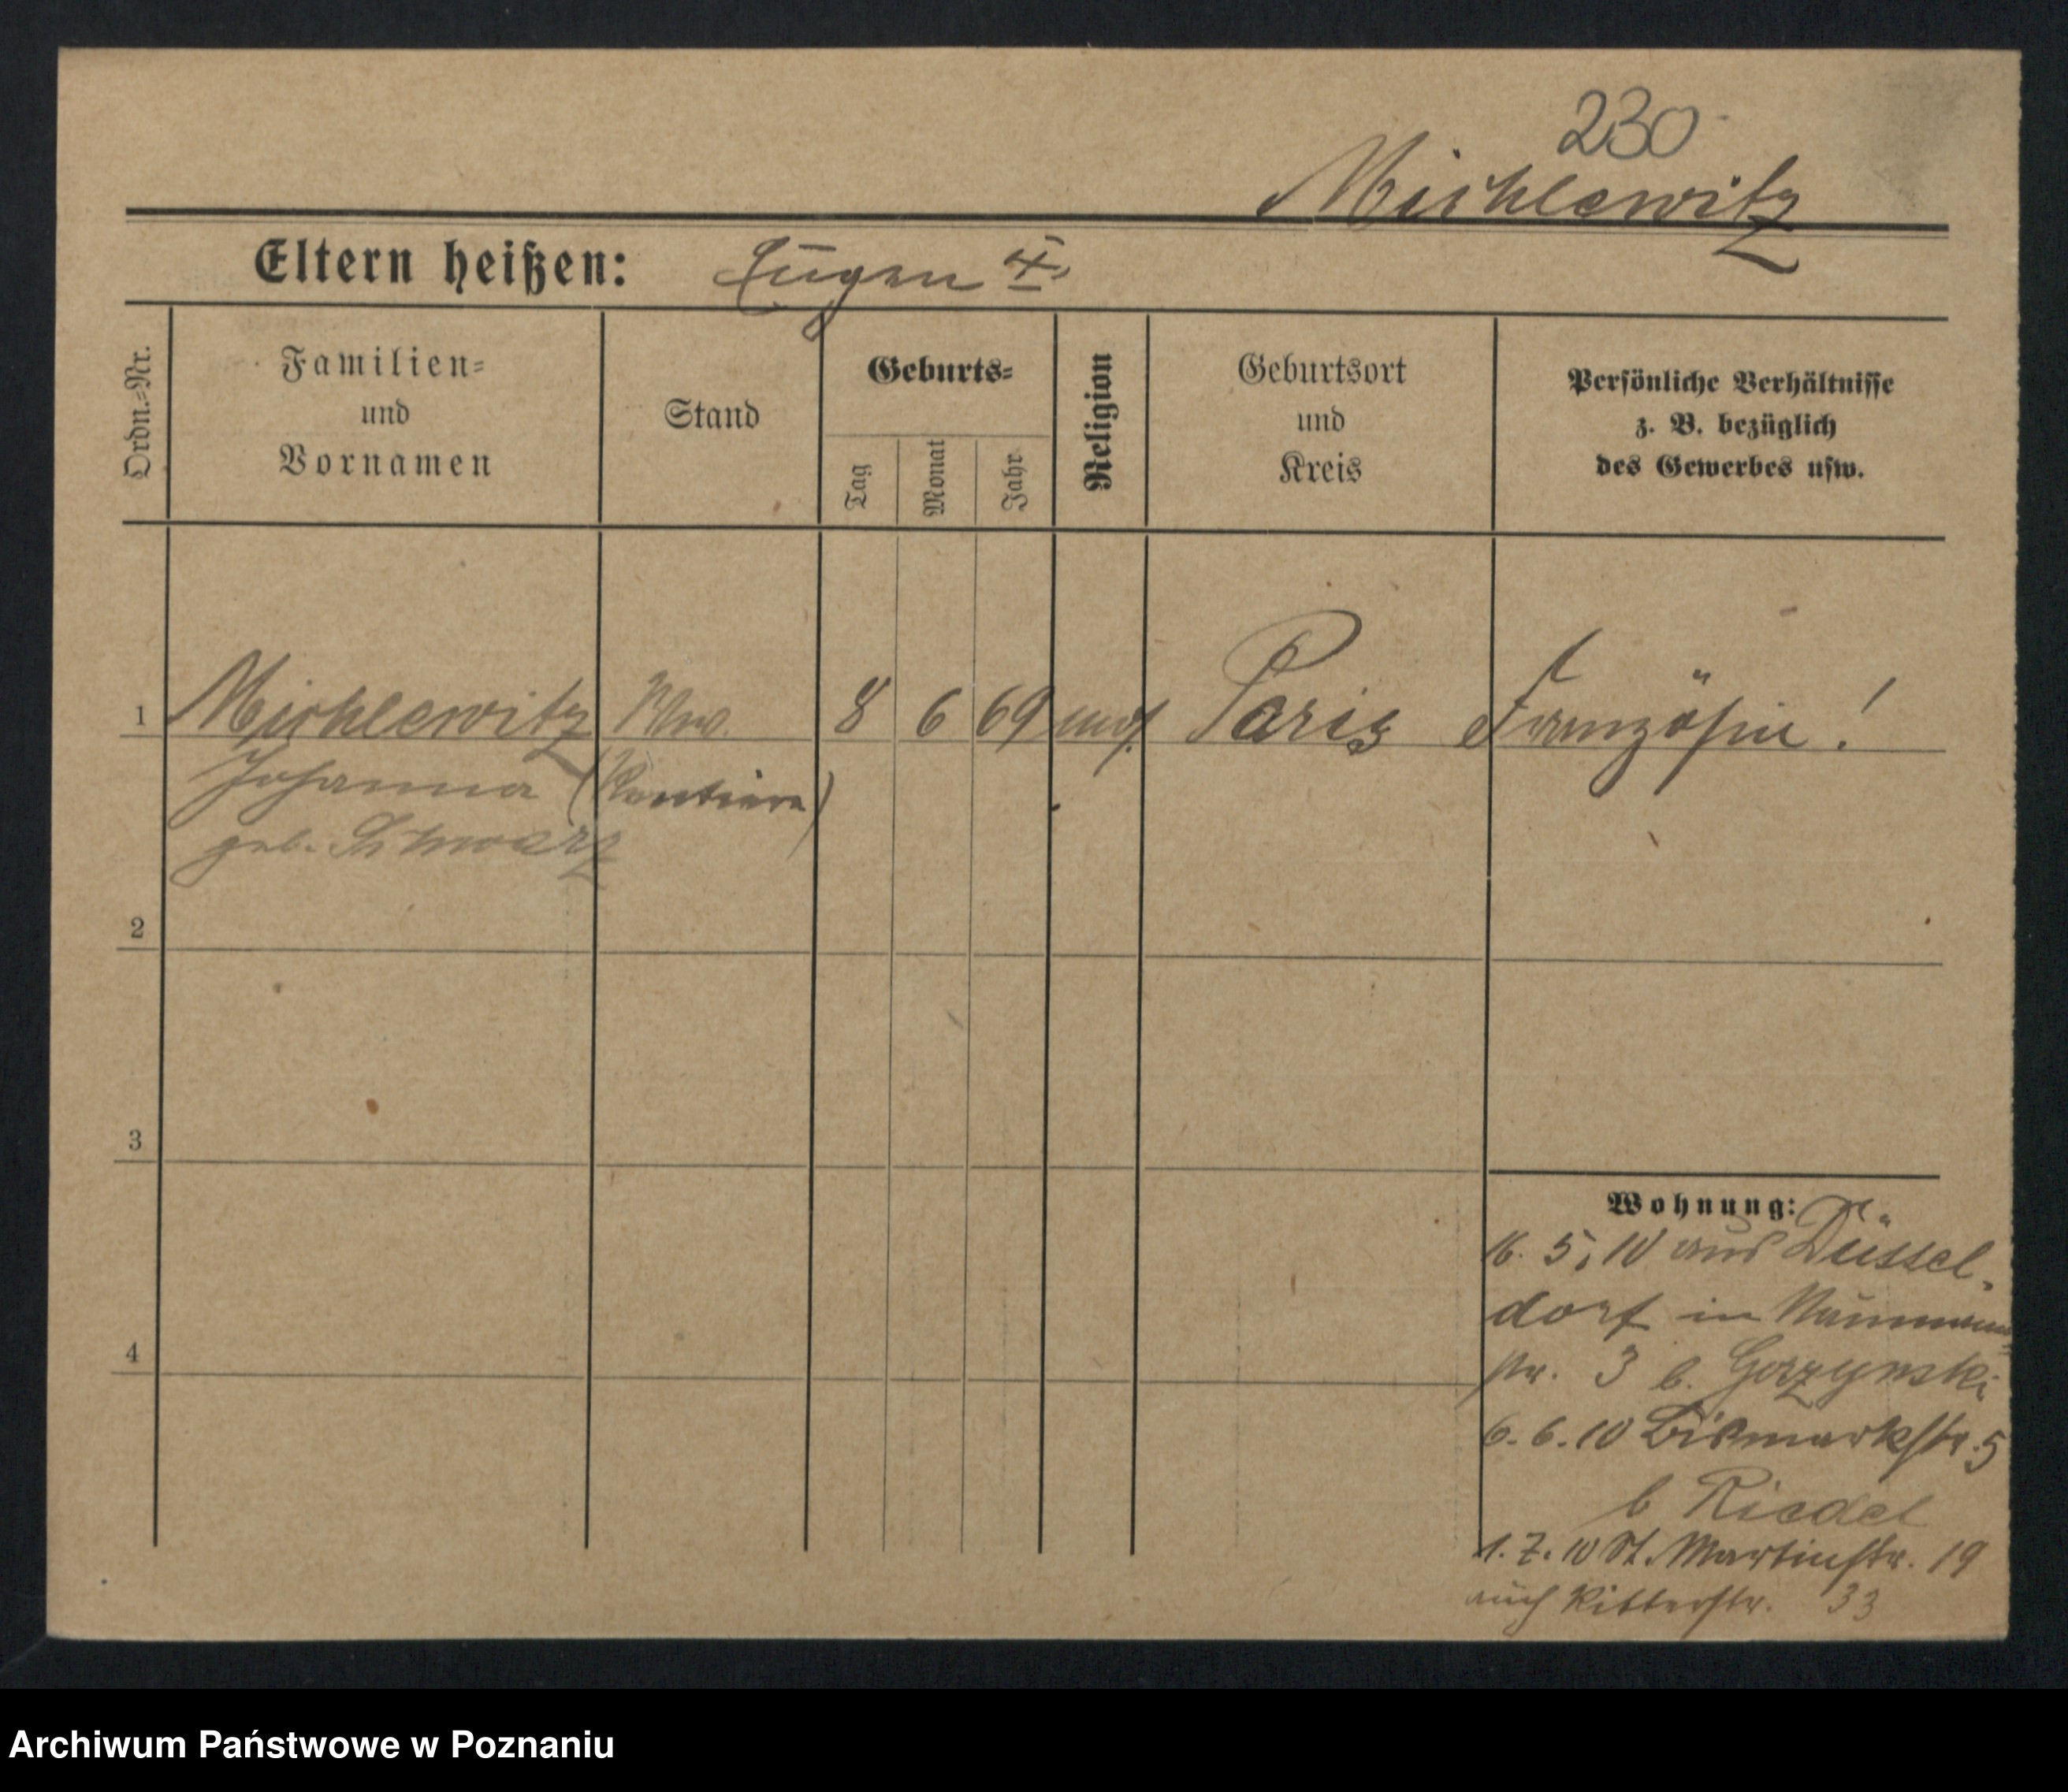 230
Michlewitz
Eltern heißen: Eugen
Ordn.=Nr.
Familien=
und
Vornamen
Stand
Geburts=
Tag
Monat
Jahr
Religion
Geburtsort
und
Kreis
Persönliche Verhältnisse
z. B. bezüglich
des Gewerbes usw.
1 Michlewitz Wwe. 8 6 69 Paris Französin!
Johanna (Rentiere)
geb. Schwarz
2
3
4
Wohnung:
16. 5. 10 aus Düssel-
dorf in Naumann-
str. 3 b. Gorzynski
6. 6. 10 Bismarkstr. 5
b Riedel
1. 7. 10 St. Martinstr. 19
auch Ritterstr. 33
Archiwum Państwowe w Poznaniu